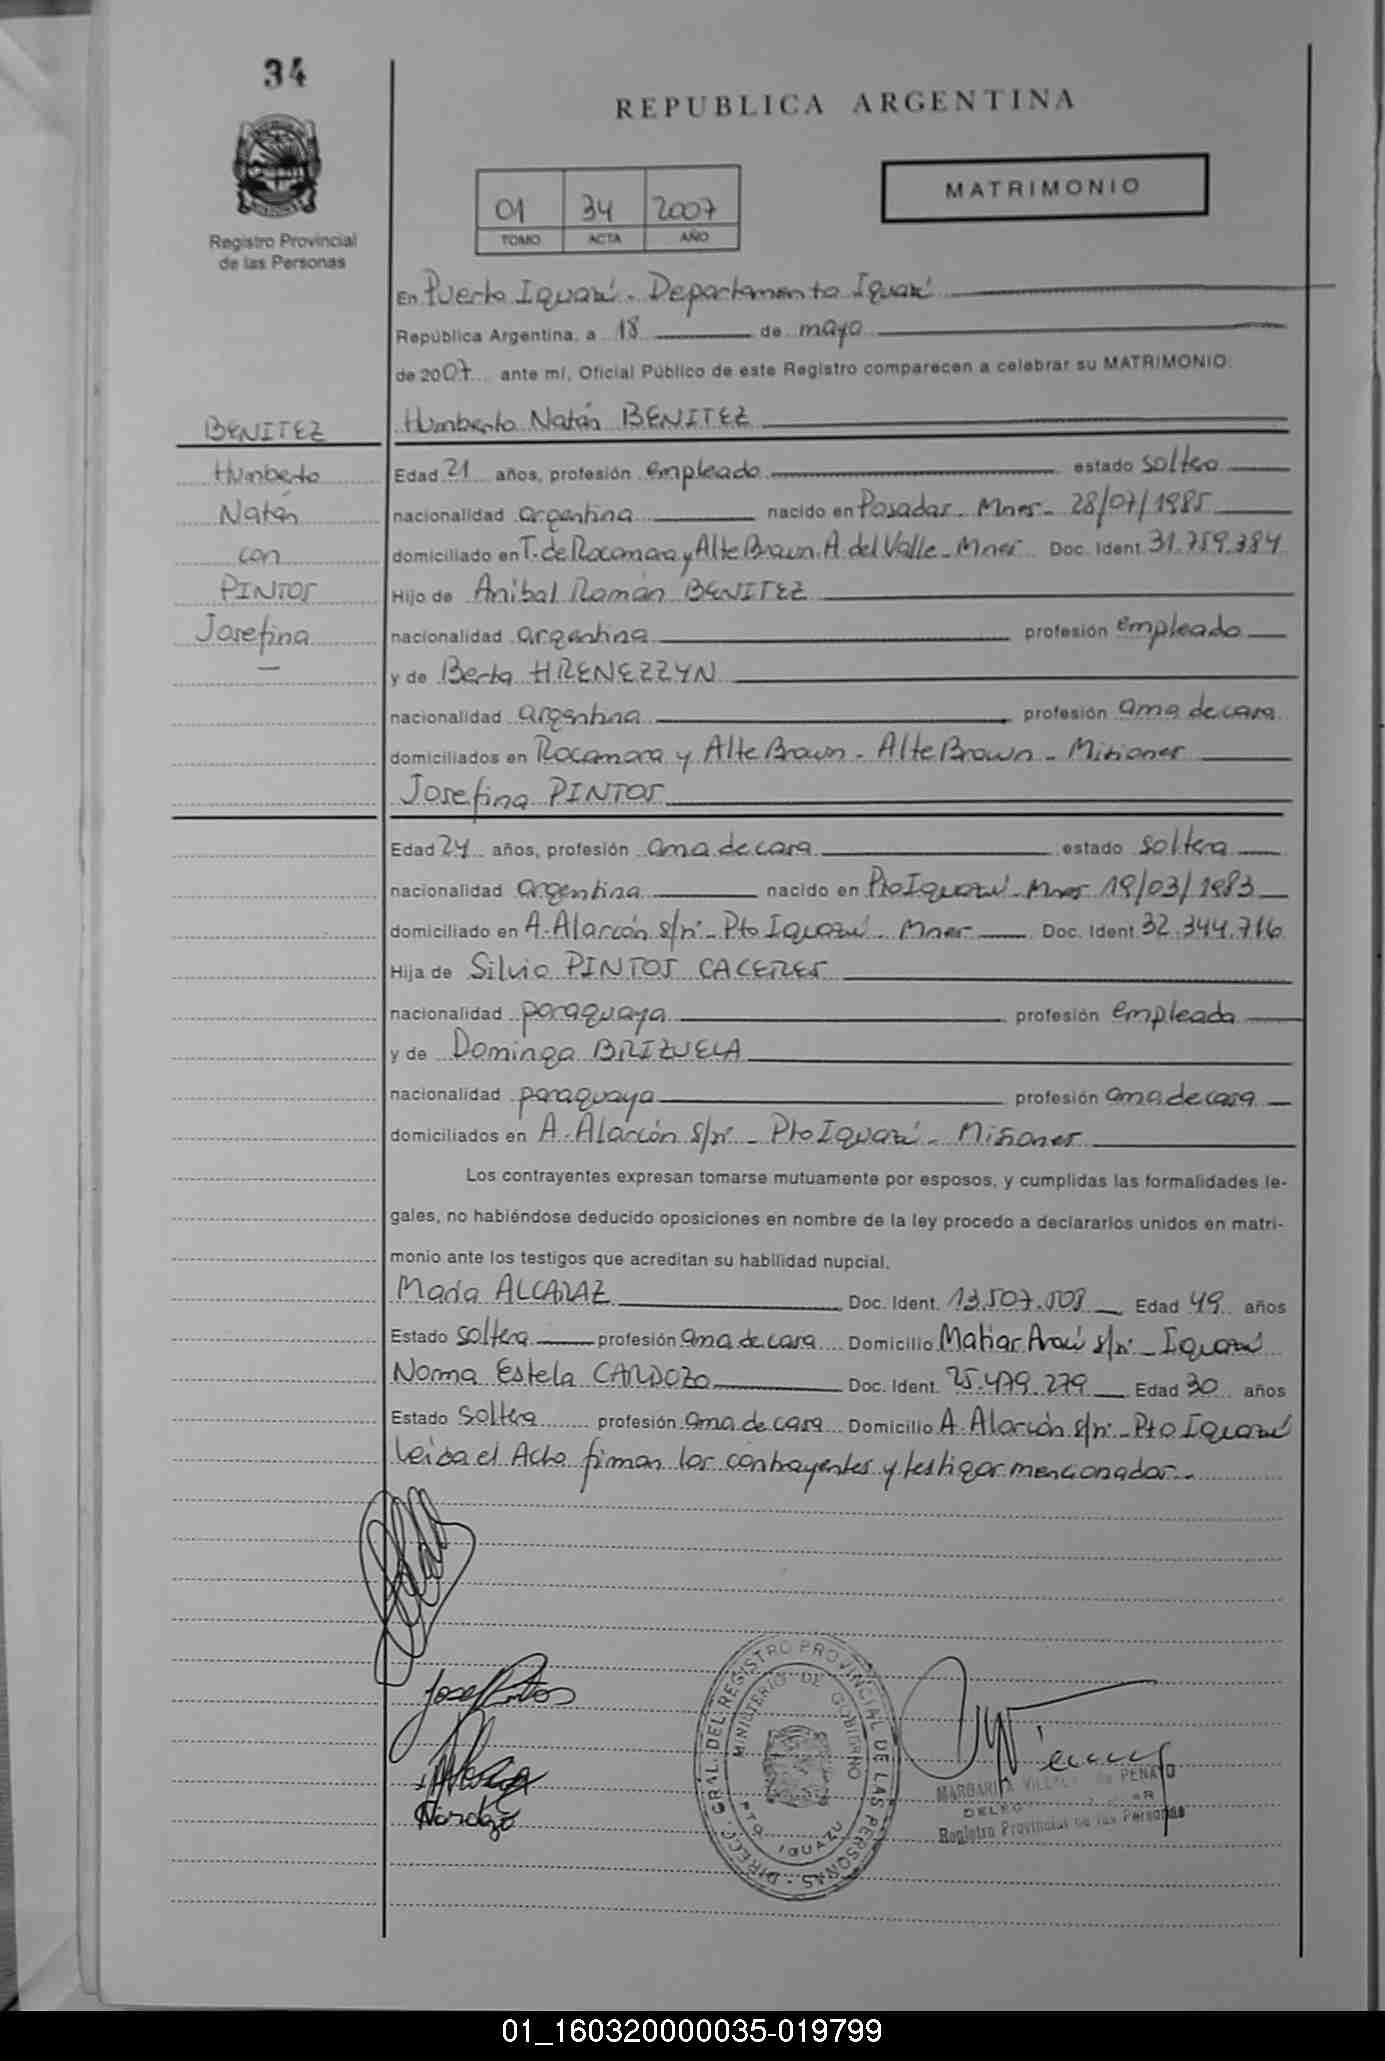 34
REPUBLICA ARGENTINA
MATRIMONIO
01 34 2007
TOMO ACTA AÑO
Registro Provincial
de las Personas
En Puerto Iguazú - Departamento Iguazú
República Argentina, a 18 de mayo
de 2007 ante mí, Oficial Público de este Registro comparecen a celebrar su MATRIMONIO:
BENITEZ
Humberto
Natán
con
PINTOS
Josefina
Humberto Natán BENITEZ
Edad 21 años, profesión empleado estado soltero
nacionalidad argentina nacido en Posadas - Mnes - 28/07/1985
domiciliado en T. de Rocamora y Alte Brown. A. del Valle - Mnes Doc. Ident. 31.759.384
Hijo de Aníbal Román BENITEZ
nacionalidad argentina profesión empleado
y de Berta HRENEZZYN
nacionalidad argentina profesión ama de casa
domiciliados en Rocamora y Alte Brown - Alte Brown - Misiones
Josefina PINTOS
Edad 24 años, profesión ama de casa estado soltera
nacionalidad argentina nacido en Pto Iguazú - Mnes 19/03/1983
domiciliado en A. Alarcón s/nº - Pto Iguazú - Mnes Doc. Ident. 32.344.716
Hija de Silvio PINTOS CACERES
nacionalidad paraguaya profesión empleada
y de Dominga BRIZUELA
nacionalidad paraguaya profesión ama de casa
domiciliados en A. Alarcón s/nº - Pto Iguazú - Misiones
Los contrayentes expresan tomarse mutuamente por esposos, y cumplidas las formalidades le-
gales, no habiéndose deducido oposiciones en nombre de la ley procedo a declararlos unidos en matri-
monio ante los testigos que acreditan su habilidad nupcial.
María ALCARAZ Doc. Ident. 13.507.508 Edad 49 años
Estado soltera profesión ama de casa Domicilio s/nº - Iguazú
Norma Estela CARDOZO Doc. Ident. 25.479.279 Edad 30 años
Estado soltera profesión ama de casa Domicilio A. Alarcón s/nº - Pto Iguazú
Leída el Acta firman los contrayentes y testigos mencionados.-
DIRECC. GRAL. DEL REGISTRO PROVINCIAL DE LAS PERSONAS
MINISTERIO DE GOBIERNO
PTO. IGUAZU
MARGARITA
Registro Provincial de las Personas
01_160320000035-019799